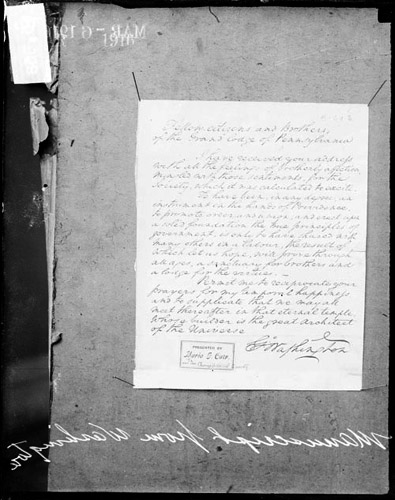 MAR - 6 1916
Fellow citizens and Brothers,
of the Grand Lodge of Pennsylvania
I have received your address
with all the feelings of brotherly affection
mingled with those sentiments, for the
Society, which it was calculated to excite.
To have been, in any degree, an
instrument in the hands of Providence
to promote order and union, and erect upon
a solid foundation the true principles of
government, is only to have shared with
many others in a labour, the result of
which let us hope, will prove through
all ages, a sanctuary for brothers and
a lodge for the virtues. —
Permit me to reciprocate your
prayers for my temporal happiness,
and to supplicate that we may all
meet thereafter in that eternal temple,
whose builder is the great architect
of the Universe
Go Washington
PRESENTED BY
Manuscript from Washington